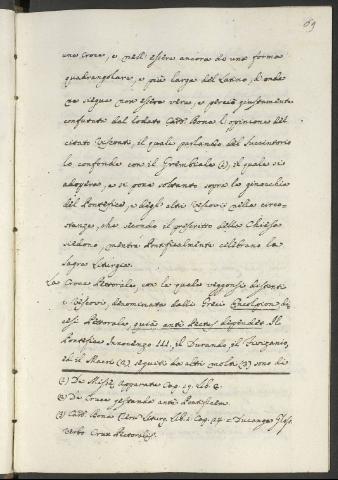 69
una Croce, e nell'essere ancora di una forma
quadrangolare, e più larga del Latino, d'onde
ne siegue non essere vera, e perciò giustamente
confutata dal lodato Card. Bona l'opinione del
citato Visconti, il quale parlando del Succintorio
lo confonde con il Grembiale (1), il quale si
adopera, e si pone soltanto sopra le ginocchia
del Pontefice, e degli altri Vescovi nelle circo-
stanze, che secondo il prescritto della Chiesa
siedono, mentre Pontificalmente celebrano la
Sagra Liturgia.
La Croce Pettorale, con la quale veggonsi distinti
i Vescovi, denominata dalli Greci Encolpion di-
cesi Pettorale, quia ante Pectus dependet. Il
Pontefice Innocenzo III, il Durando, il
ed il Macri (2) seguiti da altri molti (3) sono di
(1) De Missæ Apparatu Cap. 29. Lib. 4.
(2) De Cruce gestanda ante Pontificem
(3) Card. Bona Rerum Liturg. Lib. 1. Cap. 24 = Ducange Gloss.
verbo Crux Pectoralis.